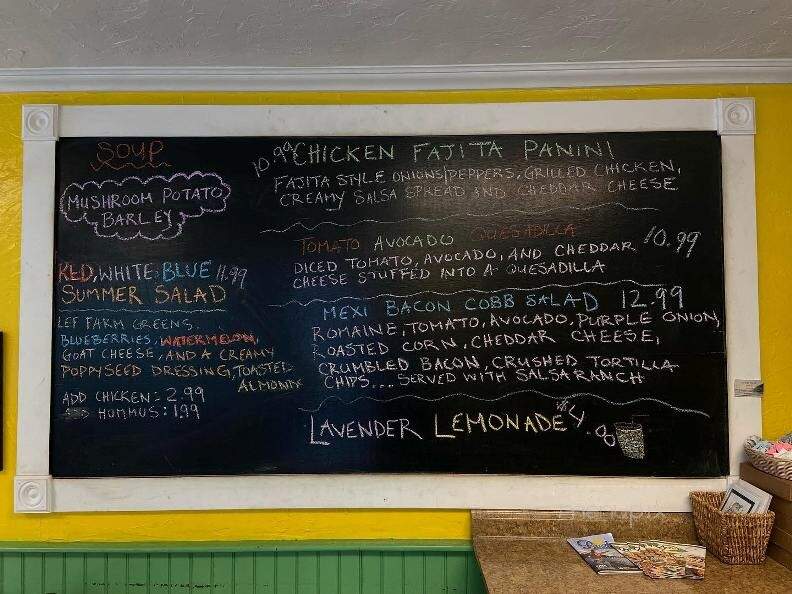 SOUP
MUSHROOM POTATO
BARLEY
RED, WHITE, BLUE 11.99
SUMMER SALAD
LEF FARM GREENS,
BLUEBERRIES, WATERMELON,
GOAT CHEESE, AND A CREAMY
POPPYSEED DRESSING, TOASTED
ALMONDS
ADD CHICKEN: 2.99
ADD HUMMUS: 1.99
10.99 CHICKEN FAJITA PANINI
FAJITA STYLE ONIONS/PEPPERS, GRILLED CHICKEN,
CREAMY SALSA SPREAD AND CHEDDAR CHEESE
TOMATO AVOCADO QUESADILLA 10.99
DICED TOMATO, AVOCADO, AND CHEDDAR
CHEESE STUFFED INTO A QUESADILLA
MEXI BACON COBB SALAD 12.99
ROMAINE, TOMATO, AVOCADO, PURPLE ONION,
ROASTED CORN, CHEDDAR CHEESE,
CRUMBLED BACON, CRUSHED TORTILLA
CHIPS... SERVED WITH SALSA RANCH
LAVENDER LEMONADE $4.